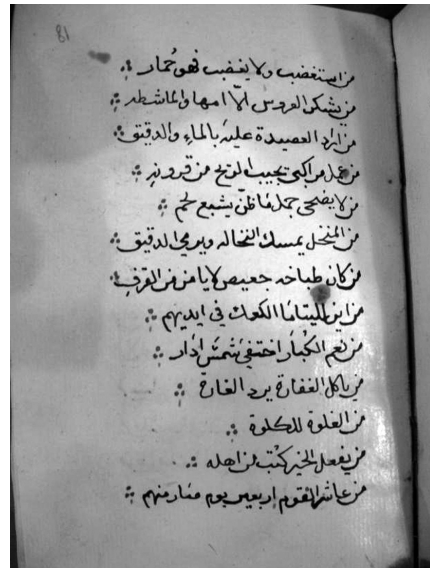 81
من استغضب ولا يغضب فهو حُمار
من يشكر العروس الّا امها والماشطه
من اراد العصيدة عليه بالماء والدقيق
من من قرونه
من لا يضحي جمل ما ظنّ يشبع لحم
من المنخل يمسك النخاله ويرمي الدقيق
من كان طباخه جعيص لا يامن من القرف
من اين لليتاما الكعوك في ايديهم
من نعم الكبار اختفي شمس ادار
من ياكل الغفارة يرد الغارة
من الغلوة للكلوة
من يفعل الخير كُتب من اهله
من عاشر القوم اربعين يوم صار منهم